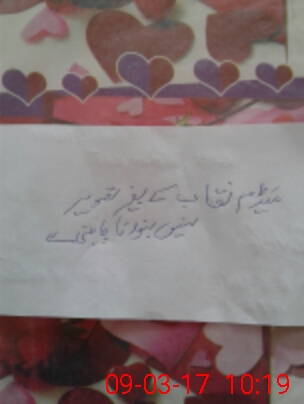 میڈم نقاب کے بغیر تصویر
نہیں بنوانا چاہتی ہے
09-03-17 10:19